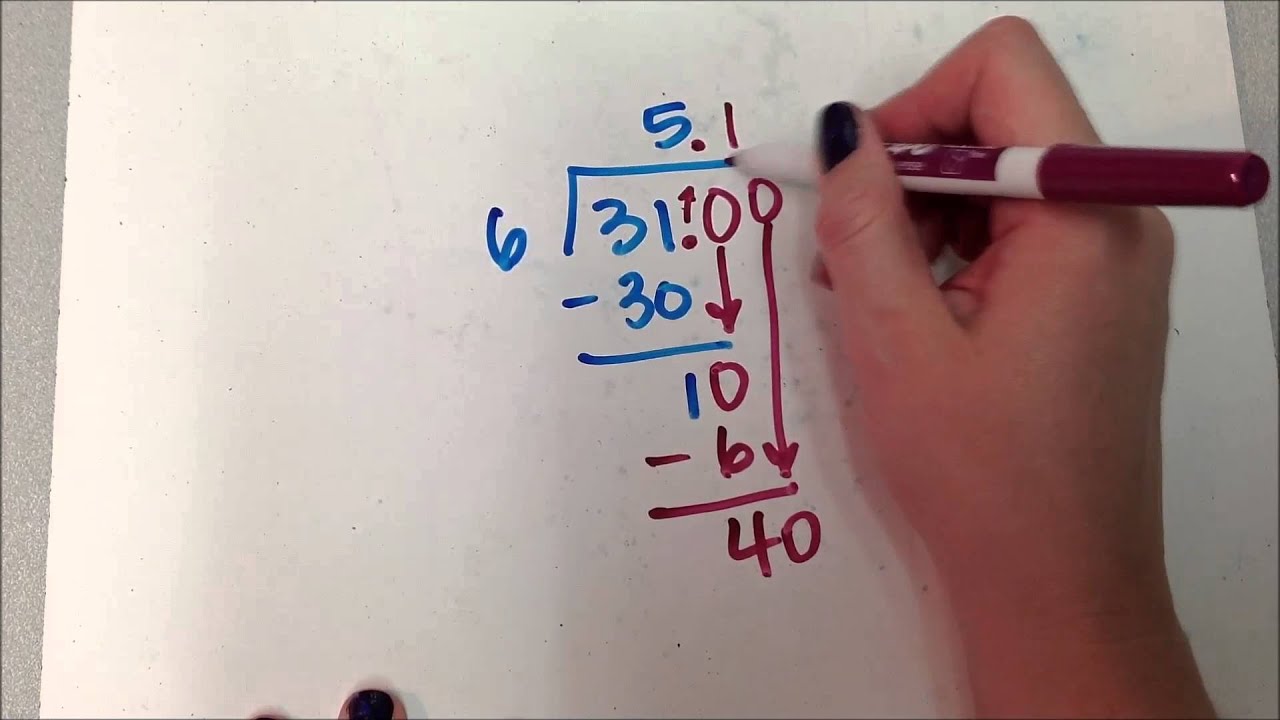 5.1
6 31.00
- 30
10
- 6
40